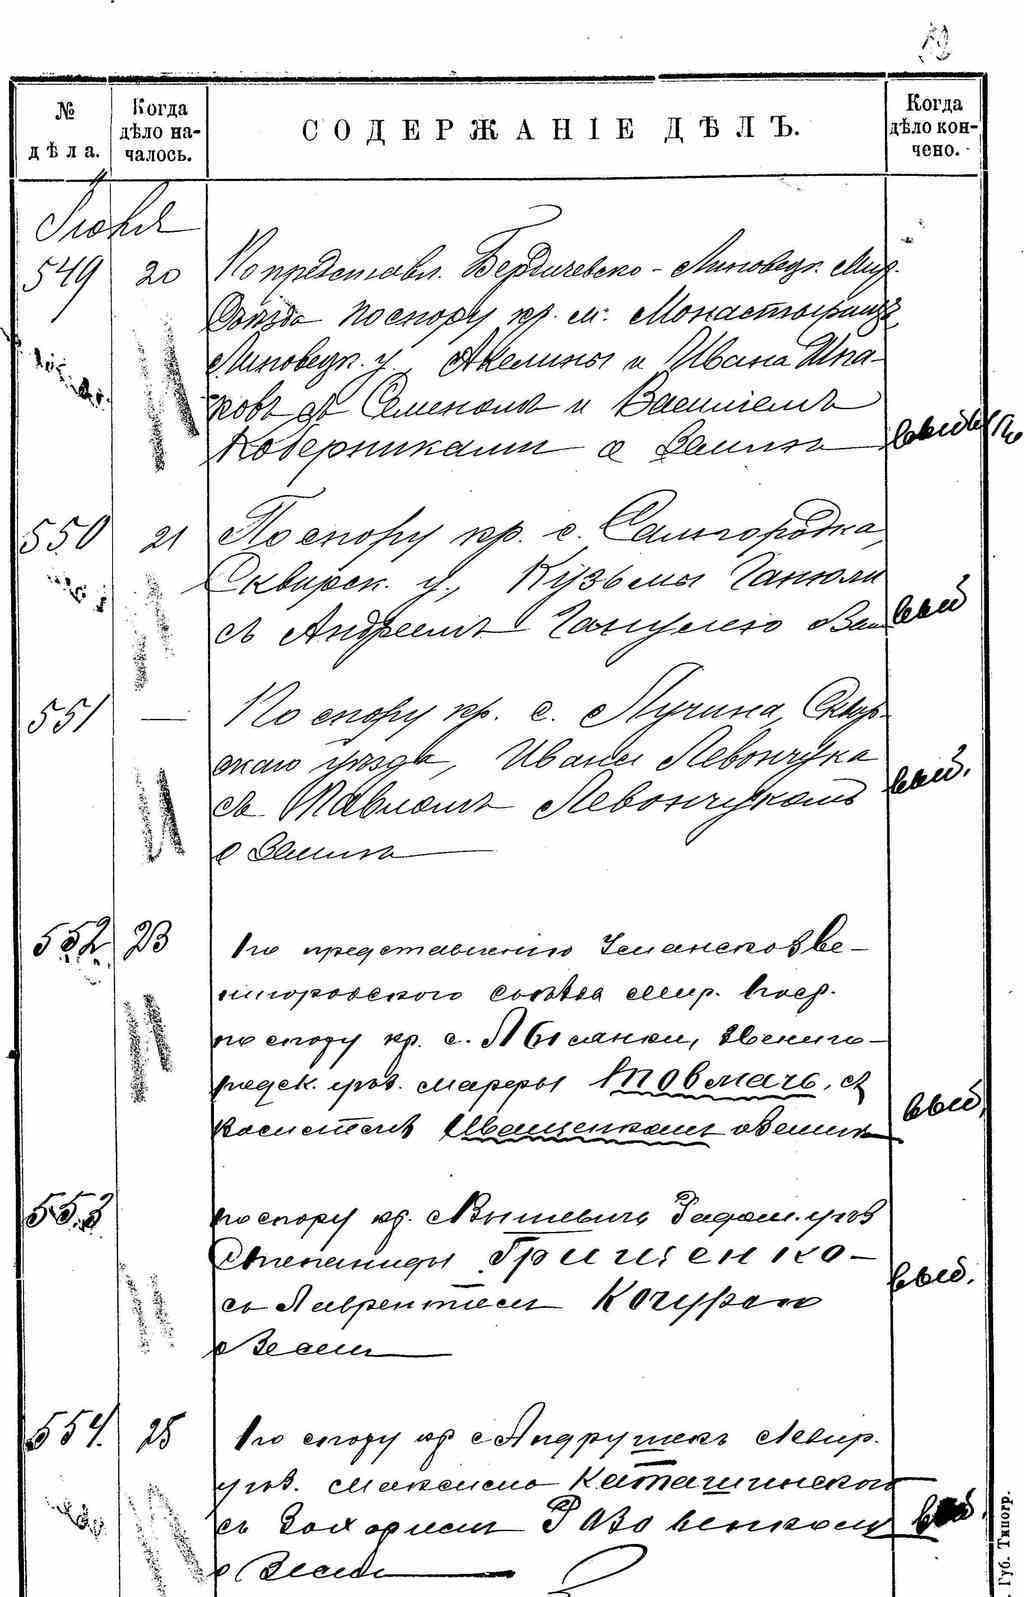 № дѣла.
Когда дѣло началось.
СОДЕРЖАНІЕ ДѢЛЪ.
Когда дѣло кончено.
Іюня
549 20 По представл. Бердичевско-Липовецк. Мир.
Съѣзда по спору кр. м. Монастырищъ,
Липовецк. у., Акелины и Ивана Шпа-
ковъ съ Семеномъ и Василіемъ
Коберниками о землѣ
550 21 По спору кр. с. Самгородка,
Сквирск. у., Кузьмы
съ Андреемъ
вый
551 — По спору кр. с. Лучина, Сквир-
скаго уѣзда, Ивана Левончука
съ Павломъ Левончукомъ
вый.
о землѣ
552 23 По представленію Уманскозве-
нигородского съѣзда мир. поср.
по спору кр. с. Лысянки, Звениго-
родск. уѣз. Марфы Товмачъ, съ
Иващенкомъ о землѣ
вый.
553 по спору кр. с. Вышевичъ Радом. уѣз
Степаниды Грищенко-
съ Лаврентіем Кочурою
вый.
о Земли
554. 25 По спору кр с Андрушекъ
уѣз. Максима Каташинского
съ Захаріем
о Земли
Губ. Типогр.